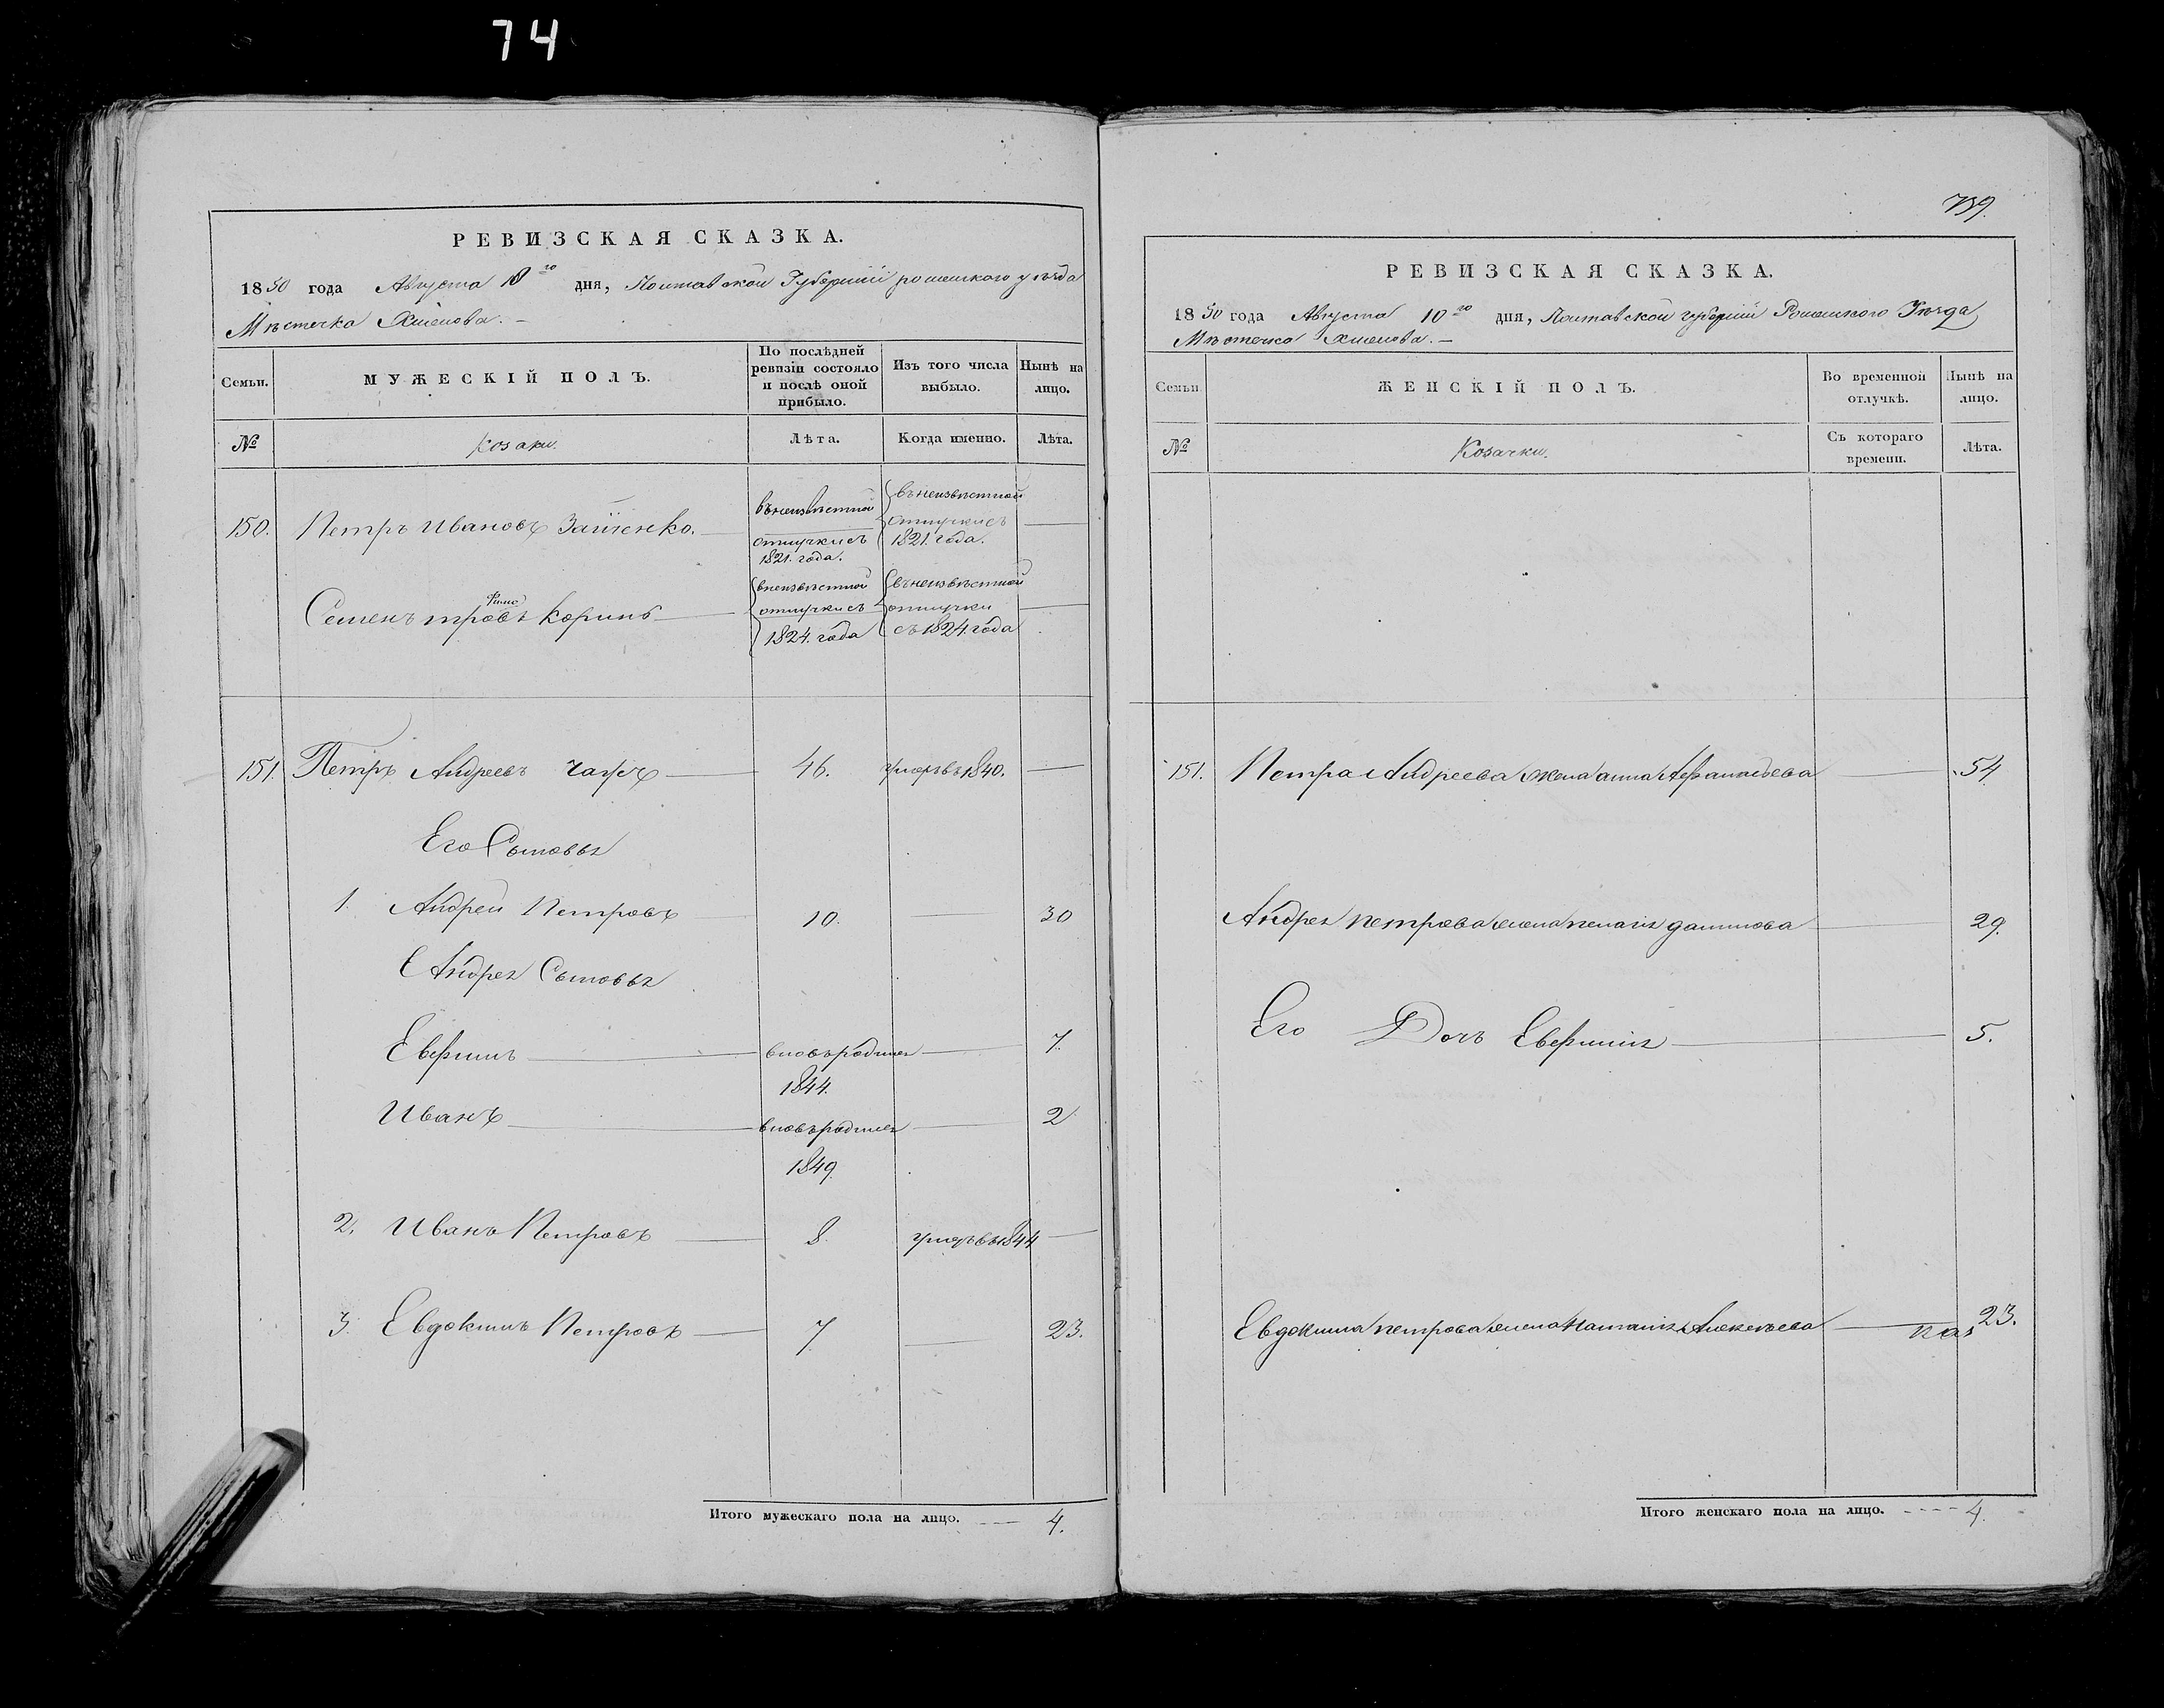 74
РЕВИЗСКАЯ СКАЗКА.
1850 года Августа 10го дня, Полтавской Губерніи роменского уезда
Мѣстечка Хмелова.
Семьи.
МУЖЕСКІЙ ПОЛЪ.
По послѣдней ревизіи состояло и послѣ оной прибыло.
Изъ того числа выбыло.
Нынѣ на лицо.
№
Козаки.
Лѣта.
Когда именно.
Лѣта.
150. Петръ Ивановъ
въ неизвѣстной отлучки съ 1821. года.
въ неизвѣстной отлучки съ 1821. года.
Семенъ
внеизвѣстной отлучки съ 1824. года
въ неизвѣстной отлучки съ 1824. года
151. Петръ Андреевъ 46. умеръ въ 1840.
Его Сыновья
1. Андрей Петровъ 10. 30
Андрея Сыновья
вновь родился 7.
1844.
Иванъ вновь родился 2
1849.
2. Иванъ Петровъ 8. умеръ въ 1844
3. Евдокимъ Петровъ 7 23.
Итого мужескаго пола на лицо. 4.
739.
РЕВИЗСКАЯ СКАЗКА.
1850 года Августа 10го дня, Полтавской губерніи Роменского Уезда
Мѣстечка Хмелова.
Семьи
ЖЕНСКІЙ ПОЛЪ.
Во временной отлучкѣ.
Нынѣ на лицо.
№
Козачки.
Съ котораго времени.
Лѣта.
151. Петра Андреева жена анна Афанасьева 54
Андрея петрова жена пелагія данилова 29.
Его Дочь 5.
Евдокима петрова жена Наталія Алексѣева 23.
Итого женскаго пола на лицо. 4.